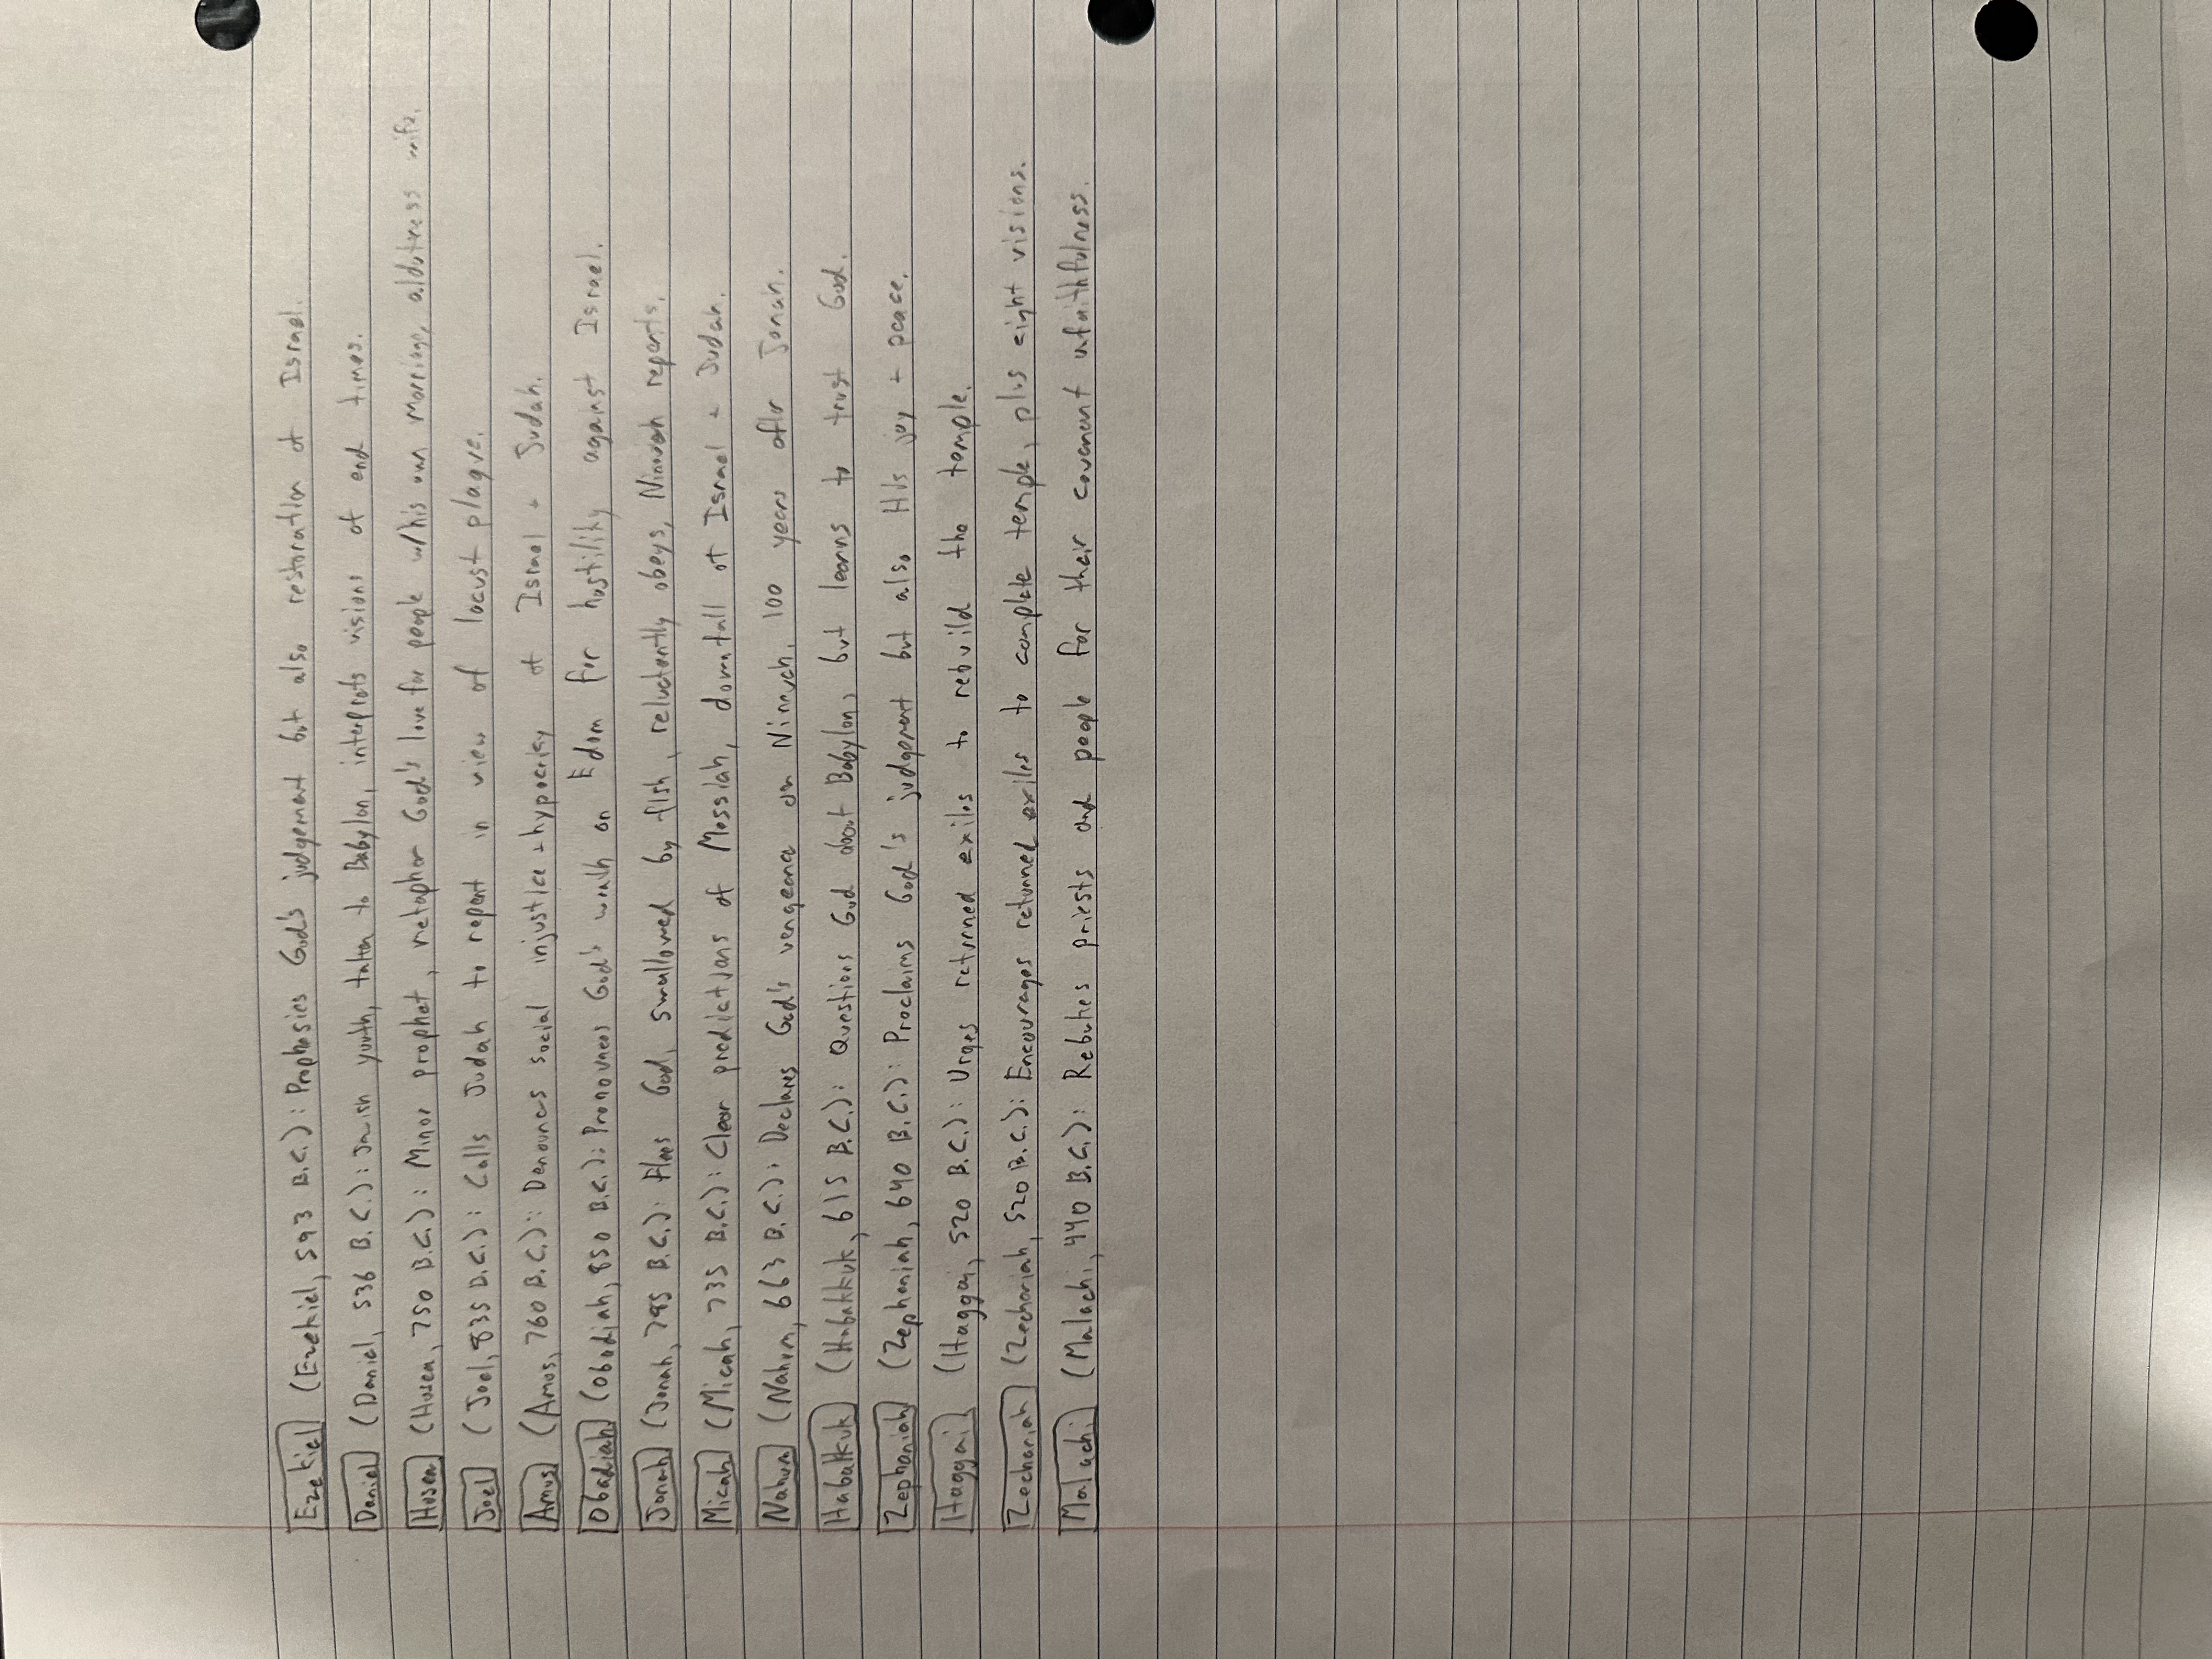 Ezekiel (Ezekiel, 593 B.C.): Prophesies God's judgement but also restoration of Israel.
Daniel (Daniel, 536 B.C.): Jewish youth, taken to Babylon, interprets visions of end times.
Hosea (Hosea, 750 B.C.): Minor prophet, metaphor God's love for people w/his own marriage, aldutress wife.
Joel (Joel, 835 B.C.): Calls Judah to repent in view of locust plague.
Amos (Amos, 760 B.C.): Denounces social injustice + hypocrisy of Israel + Judah.
Obadiah (Obadiah, 850 B.C.): Pronounces God's wrath on Edom for hostility against Israel.
Jonah (Jonah, 785 B.C.): Flees God, swallowed by fish, reluctantly obeys, Ninevah repents.
Micah (Micah, 735 B.C.): Clear predictions of Messiah, downfall of Israel + Judah.
Nahum (Nahum, 663 B.C.): Declares God's vengeance on Ninevah, 100 years after Jonah.
Habakkuk (Habakkuk, 615 B.C.): Questions God about Babylon, but learns to trust God.
Zephaniah (Zephaniah, 640 B.C.): Proclaims God's judgement but also His joy + peace.
Haggai (Haggai, 520 B.C.): Urges returned exiles to rebuild the temple.
Zechariah (Zechariah, 520 B.C.): Encourages returned exiles to complete temple, plus eight visions.
Malachi (Malachi, 440 B.C.): Rebukes priests and people for their covenant unfaithfulness.